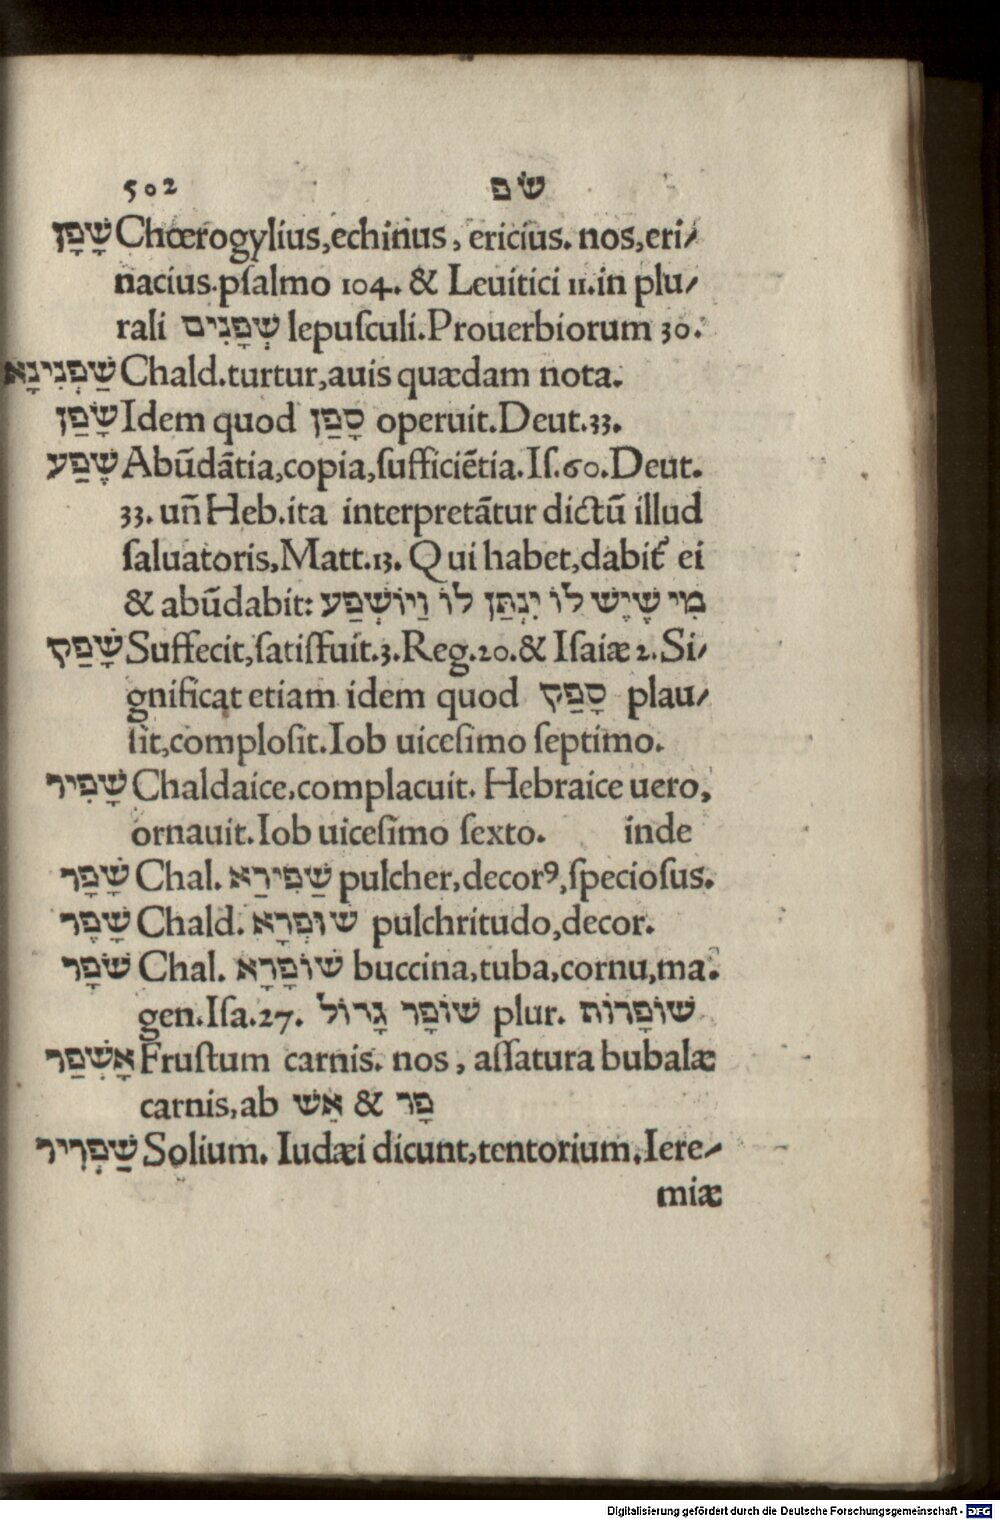 502 שׂפ
שָׁפָן Chœrogylius, echinus, ericius. nos, eri⸗
nacius. pſalmo 104. & Leuitici 11. in plu⸗
rali שְׁפָנִים lepuſculi. Prouerbiorum 30.
שַׁפְנִינָא Chald. turtur, auis quædam nota.
שָׂפַן Idem quod סָפַן operuit. Deut. 33.
שֶׁפַע Abūdātia, copia, ſufficiētia. Iſ. 60. Deut.
33. un̄ Heb. ita interpretātur dictū illud
ſaluatoris, Matt. 13. Qui habet, dabit᷑ ei
& abūdabit: מִי שֶׁיֵּשׁ לוֹ יִנְתַּן לוֹ וַיוֹשְׁפַע
שָׂפַק Suffecit, ſatiſfuit. 3. Reg. 20. & Iſaiæ 2. Si⸗
gnificat etiam idem quod סָפַק plau⸗
ſit, comploſit. Iob uiceſimo ſeptimo.
שָׁפִיר Chaldaice, complacuit. Hebraice uero,
ornauit. Iob uiceſimo ſexto. inde
שָׁפָר Chal. שַׁפִירַא pulcher, decorꝰ, ſpecioſus.
שָׁפֶר Chald. שׁוּפְרָא pulchritudo, decor.
שׁפָר Chal. שׁוֹפָרָא buccina, tuba, cornu, ma.
gen. Iſa. 27. שׁוֹפָר גָּדוֹל plur. שׁוֹפָרוֹת
אָשְׁפַּר Fruſtum carnis. nos, aſſatura bubalæ
carnis, ab אֵשׁ & פָּר
שַׁפְרִיר Solium. Iudæi dicunt, tentorium. Iere⸗
miæ
Digitalisierung gefördert durch die Deutsche Forschungsgemeinschaft - DFG